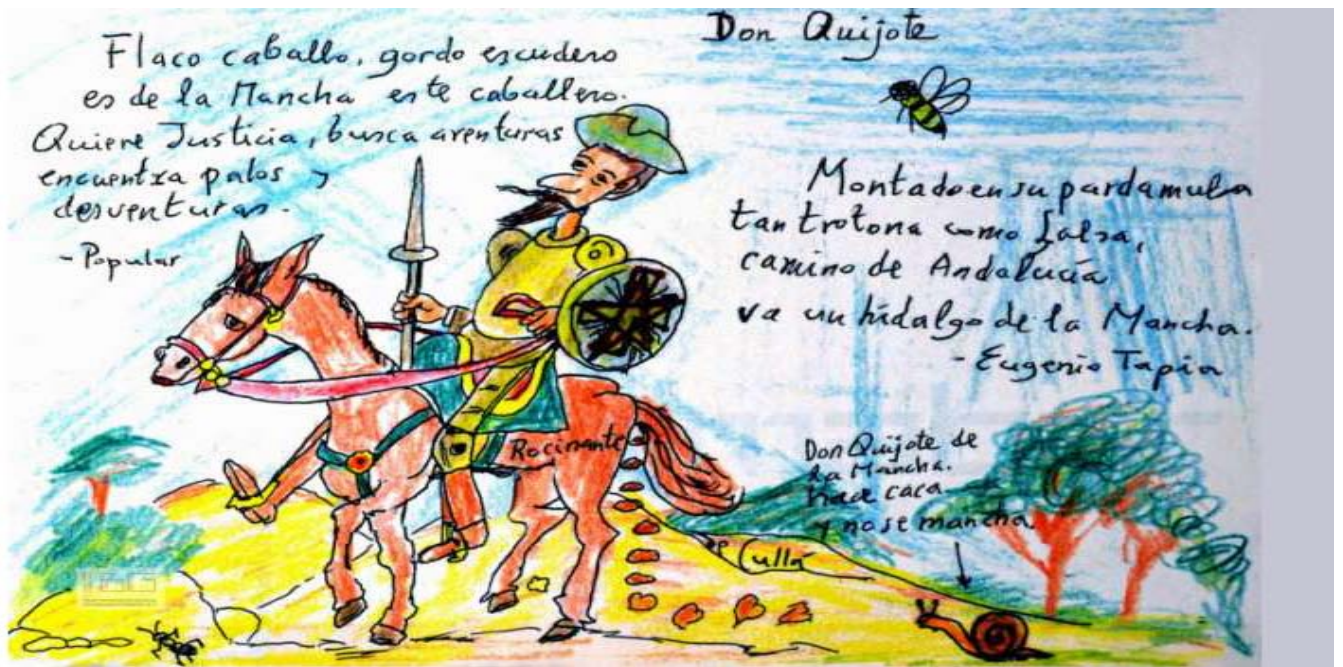 Don Quijote
Flaco caballo, gordo escudero
es de la Mancha este caballero.
Quiere Justicia, busca aventuras
encuentra palos y
desventuras.
- Popular
Montado en su parda mula
tan trotona como falsa,
camino de Andalucía
va un hidalgo de la Mancha.
- Eugenio Tapia
Rocinante
Don Quijote de
la Mancha.
hace caca
y no se mancha
Cullá